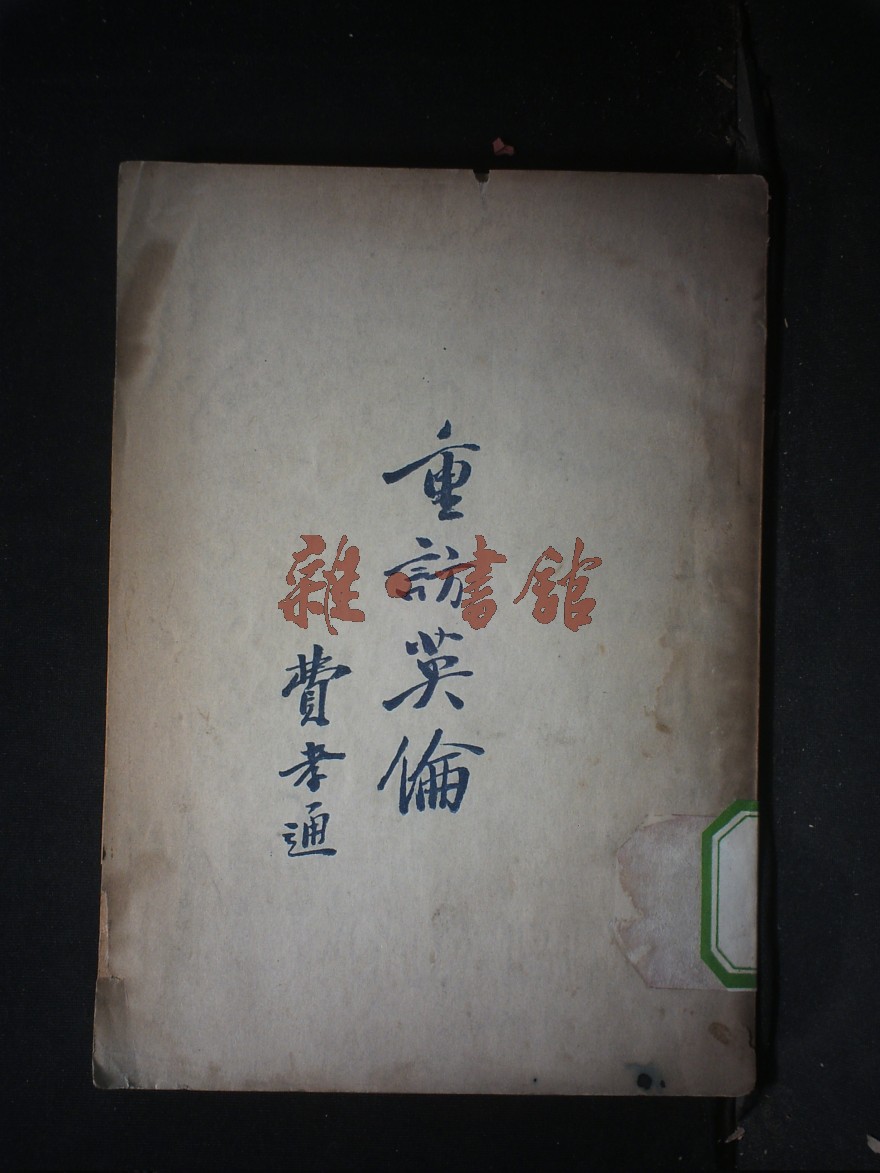 重訪英倫
費孝通
雜·書館